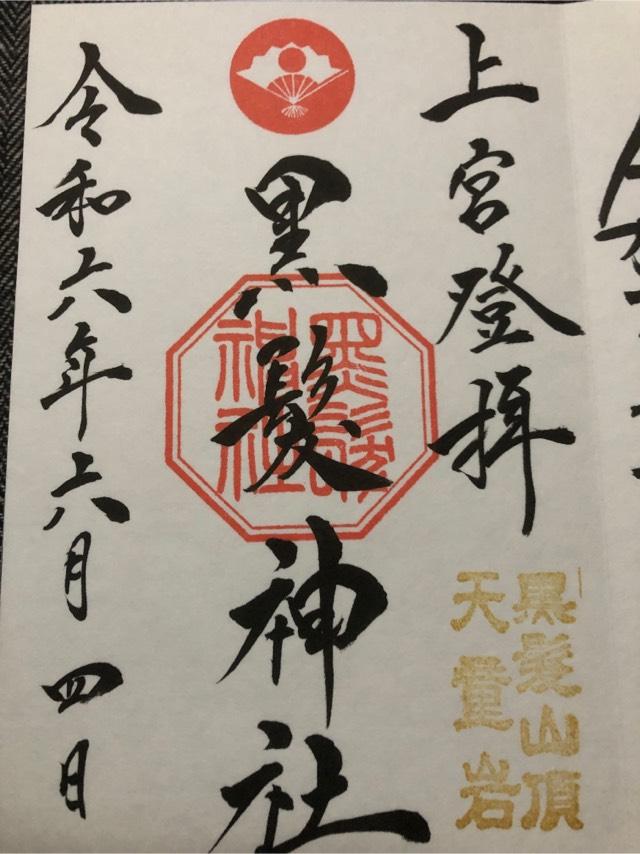 上宮登拝
黒髪山頂
天童岩
黒髪神社
黒髪神社
令和六年六月四日